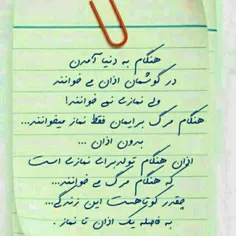 هنگام به دنیا آمدن
در گوشمان اذان می خوانند
ولی نمازی نمی خوانند!
هنگام مرگ برایمان فقط نماز میخوانند...
بدون اذان ...
اذان هنگام تولد برای نمازی است
که هنگام مرگ می خوانند...
چقدر کوتاهست این زندگی...
به فاصله یک اذان تا نماز .